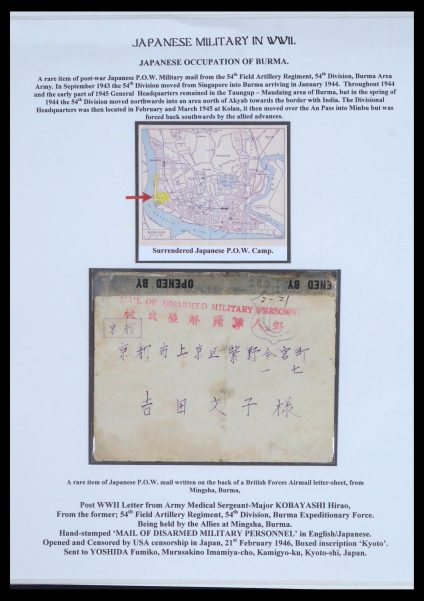 JAPANESE MILITARY IN WWII.
JAPANESE OCCUPATION OF BURMA.
A rare item of post-war Japanese P.O.W. Military mail from the 54th Field Artillery Regiment, 54th Division, Burma Area
Army. In September 1943 the 54th Division moved from Singapore into Burma arriving in January 1944. Throughout 1944
and the early part of 1945 General Headquarters remained in the Taungup – Maudaing area of Burma, but in the spring of
1944 the 54th Division moved northwards into an area north of Akyab towards the border with India. The Divisional
Headquarters was then located in February and March 1945 at Kolan, it then moved over the An Pass into Minbu but was
forced back southwards by the allied advances.
RANGOON
Surrendered Japanese P.O.W. Camp.
OPENED BY
OPENED BY
2-21
MAIL OF DISARMED MILITARY PERSONNE
京都
京都府上京区紫野今宮町
一七
吉田文子様
A rare item of Japanese P.O.W. mail written on the back of a British Forces Airmail letter-sheet, from
Mingsha, Burma,
Post WWII Letter from Army Medical Sergeant-Major KOBAYASHI Hirao,
From the former; 54th Field Artillery Regiment, 54th Division, Burma Expeditionary Force.
Being held by the Allies at Mingsha, Burma.
Hand-stamped ‘MAIL OF DISARMED MILITARY PERSONNEL’ in English/Japanese.
Opened and Censored by USA censorship in Japan, 21st February 1946, Boxed inscription ‘Kyoto’.
Sent to YOSHIDA Fumiko, Murasakino Imamiya-cho, Kamigyo-ku, Kyoto-shi, Japan.